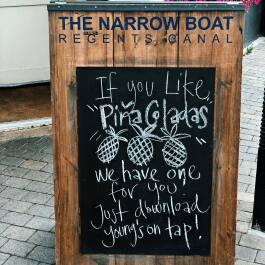 THE NARROW BOAT
REGENTS CANAL
If you Like
"Piña Coladas"
we have one
for you
Just download
young's on tap!